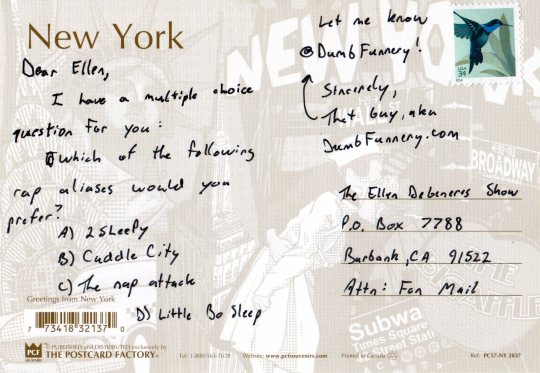 New York
Dear Ellen,
I have a multiple choice
question for you:
Which of the following
rap aliases would you
prefer?
A) 2 Sleepy
B) Cuddle City
C) The nap attack
D) Little Bo Sleep
Let me know
@DumbFunnery!
Sincerely,
That Guy, aka
DumbFunnery.com
USA
34
The Ellen Degeneres Show
P.O. Box 7788
Burbank, CA 91522
Attn: Fan Mail
NEW YORK
BROADWAY
Subwa
Times Square
Street Stati
Greetings from New York
7 73418 32137 0
PCF
© PUBLISHED and DISTRIBUTED exclusively by
THE POSTCARD FACTORY
Tel: 1-800-563-7678 Website: www.pcfsouvenirs.com Printed in Canada Ref: PC57-NY 2837